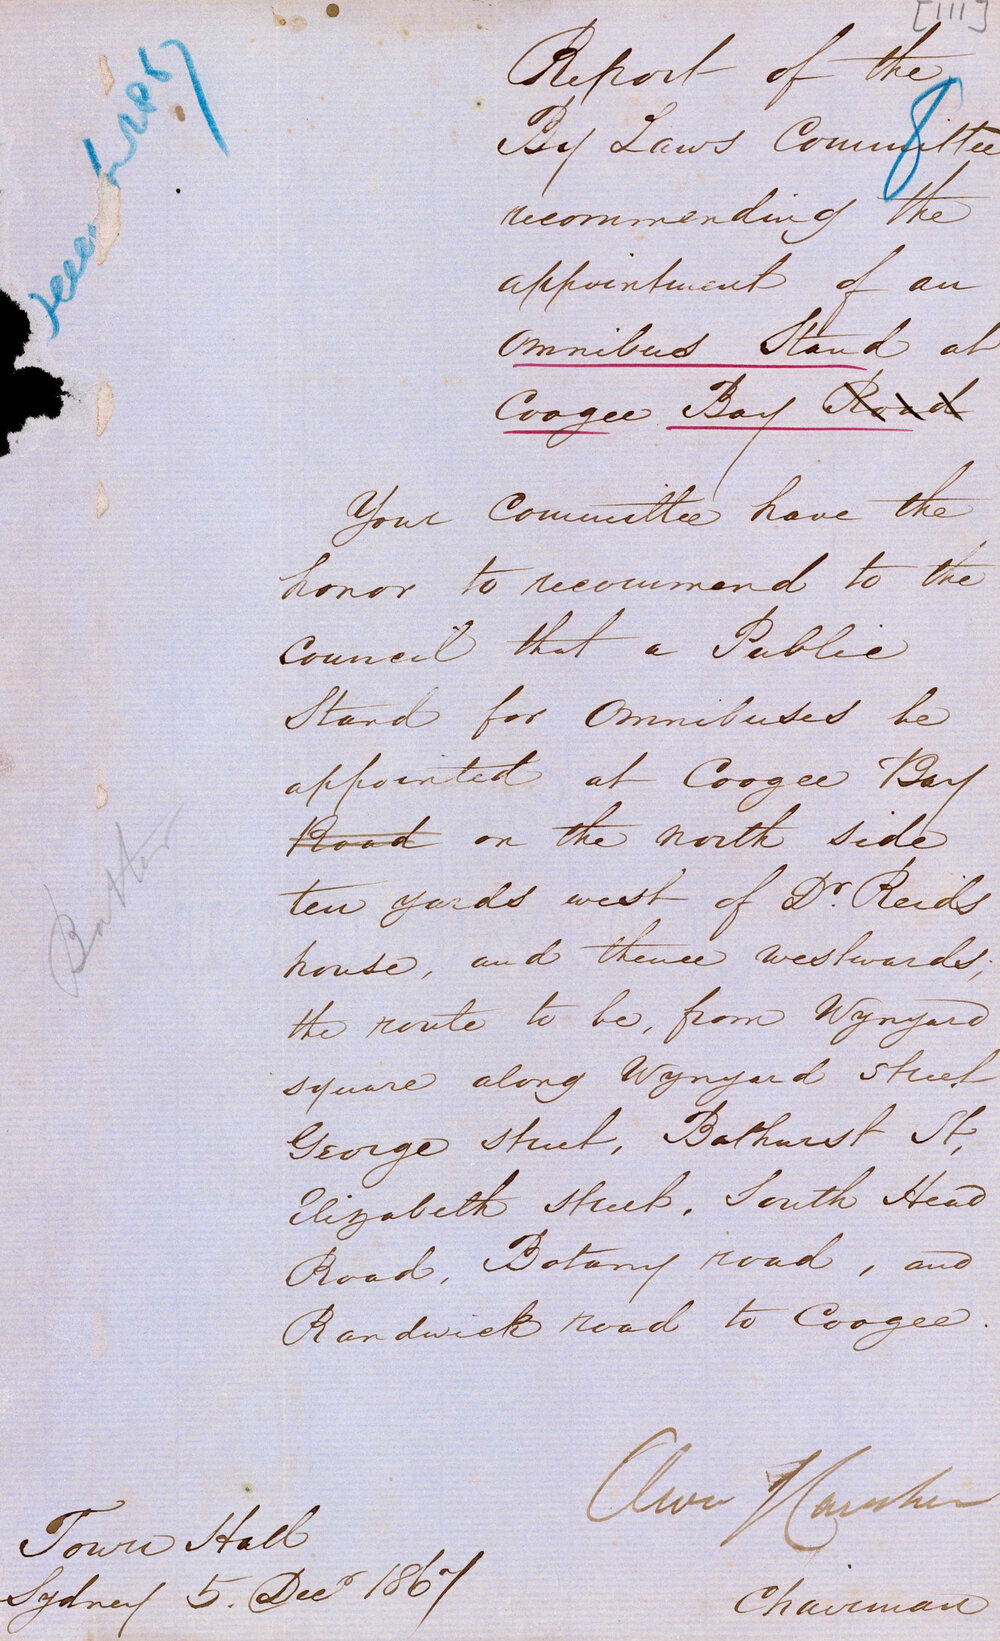 [111]
Report of the
8
By Laws Committee
recommending the
appointment of an
Omnibus Stand at
Coogee Bay Road
Your Committee have the
honor to recommend to the
Council that a Public
Stand for Omnibuses be
appointed at Coogee Bay
Road on the north side
ten yards west of Dr. Reids
house, and thence westwards;
the route to be, from Wynyard
square along Wynyard street
George street, Bathurst St,
Elizabeth street, South Head
Road, Botany road, and
Randwick road to Coogee.
Chairman
Town Hall
Sydney 5. Decr 1867